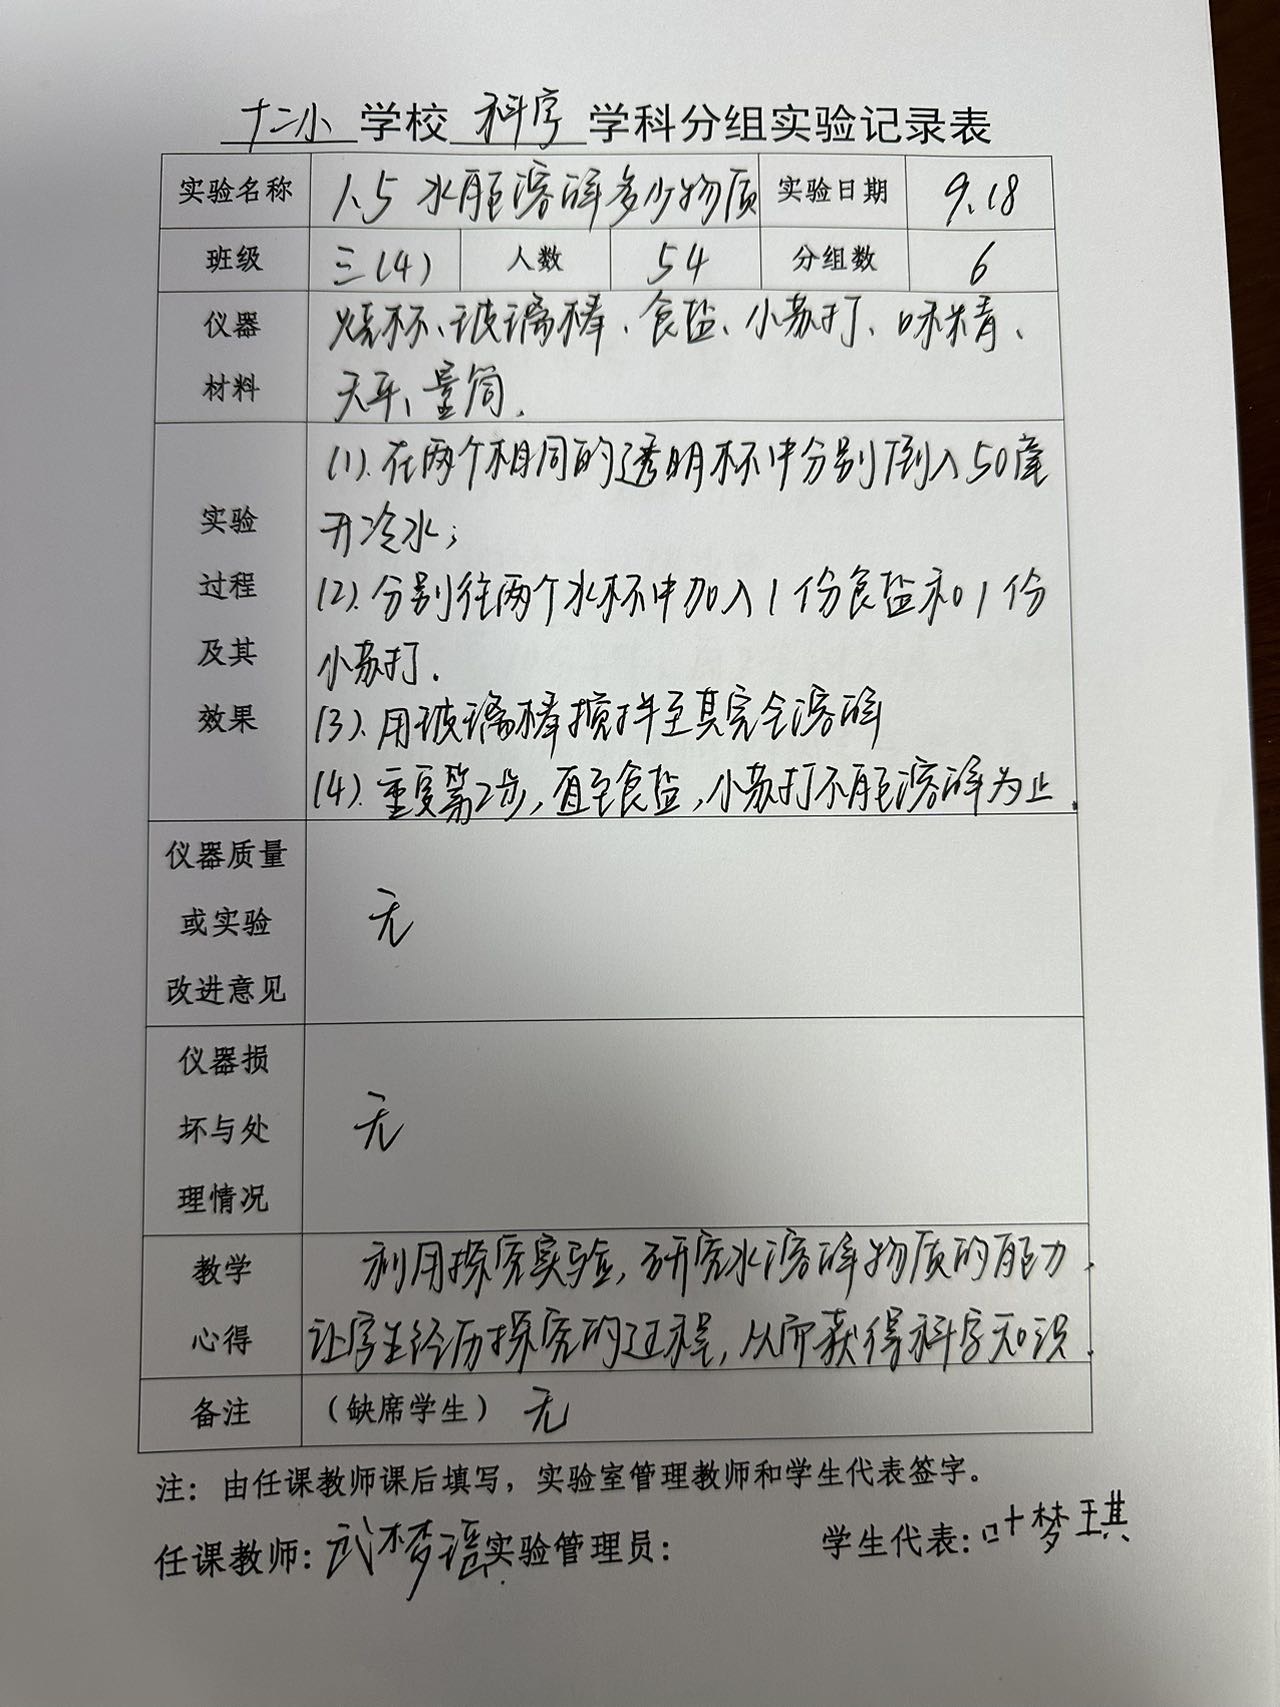 十二小 学校 科学 学科分组实验记录表
实验名称 1.5 水能溶解多少物质 实验日期 9.18
班级 三(4) 人数 54 分组数 6
仪器 烧杯、玻璃棒、食盐、小苏打、味精、
材料 天平、量筒.
(1).在两个相同的透明杯中分别倒入50毫
实验 升冷水;
过程 (2).分别往两个水杯中加入1份食盐和1份
及其 小苏打.
效果 (3).用玻璃棒搅拌至其完全溶解
(4).重复第2步,直至食盐,小苏打不能溶解为止.
仪器质量
或实验 无
改进意见
仪器损
坏与处 无
理情况
教学 利用探究实验,研究水溶解物质的能力,
心得 让学生经历探究的过程,从而获得科学知识.
备注 (缺席学生) 无
注:由任课教师课后填写,实验室管理教师和学生代表签字。
任课教师:武梦瑶 实验管理员: 学生代表:叶梦琪